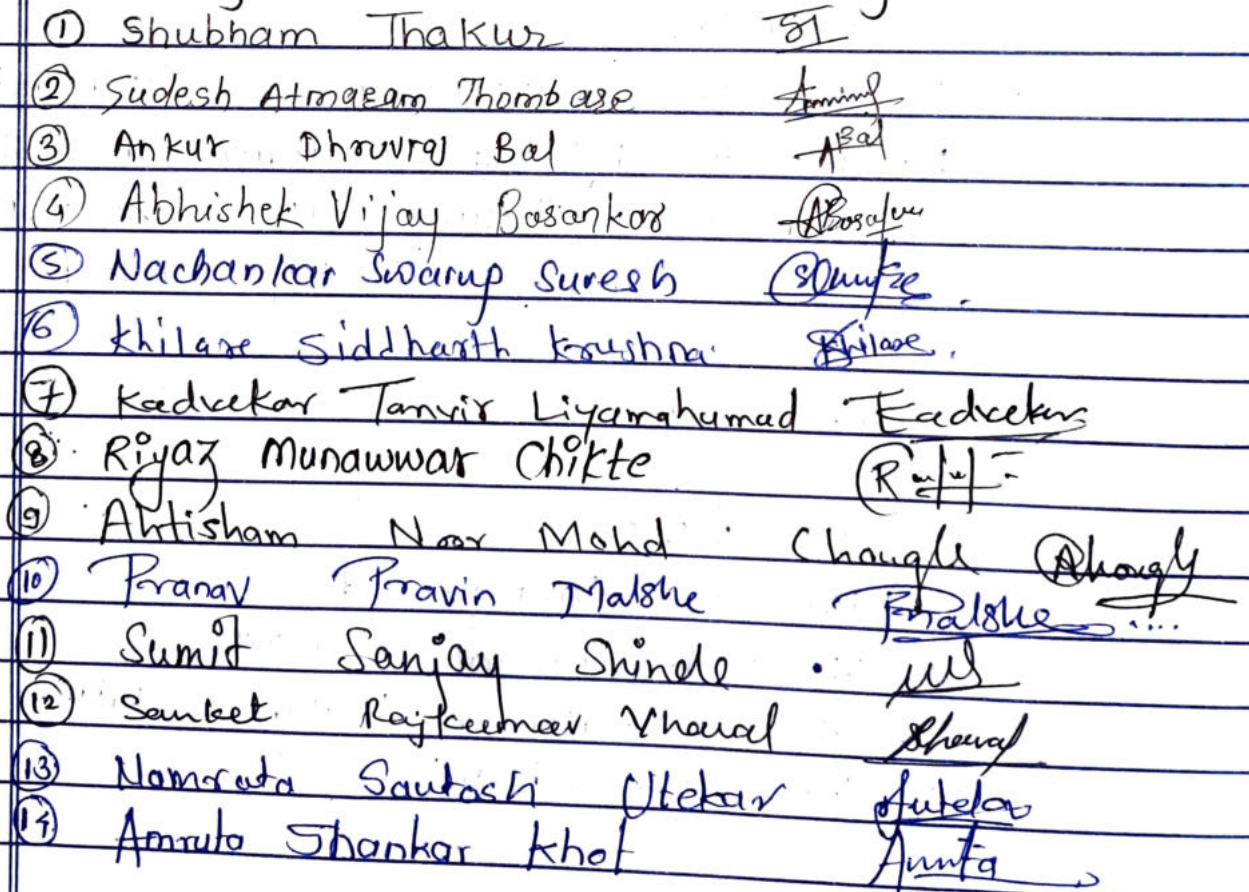 ① Shubham Thakur
② Sudesh Atmaram Thombare
③ Ankur Dhruvraj Bal ABal
④ Abhishek Vijay Basankar
⑤ Nachankar Swarup Suresh
⑥ Khilare Siddharth Krushna Khilare
⑦ Kadvekar Tanvir Liyamahumad Kadvekar
⑧ Riyaz Munawwar Chikte
⑨ Ahtisham Noor Mohd Chougle
⑩ Pranav Pravin Malshe PMalshe
⑪ Sumit Sanjay Shinde
⑫ Sanket Rajkumar Yhoval
⑬ Namrata Santosh Utekar
⑭ Amruta Shankar Khot Amruta